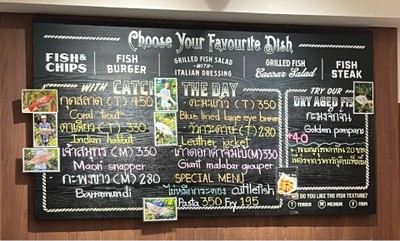 Choose Your Favourite Dish
FISH & CHIPS
FISH BURGER
GRILLED FISH SALAD
WITH
ITALIAN DRESSING
GRILLED FISH
Caesar Salad
FISH STEAK
WITH CATCH THE DAY
กุดสลาด (T) 450
Coral trout
ตาเดียว (T) 330
Indian halibut
เจ้าสมุทร (M) 330
Maori snapper
กะพงขาว (M) 280
Barramundi
ตะมะแก้ว (T) 350
Blue lined large eye bream
วัวกระดาษ (T) 280
Leather jacket
330
Giant malabar grouper
SPECIAL MENU
cuttlefish
Pasta 350 Fry 195
TRY OUR
DRY AGED FISH
Golden pompano
+40
DO YOU LIKE THE FISH TEXTURE?
T TENDER M MEDIUM F FIRM